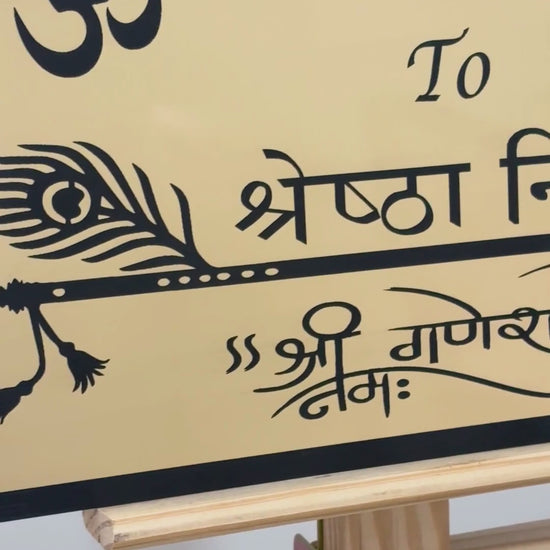 ॐ
To
श्रेष्ठा नि
श्री गणेश
नमः